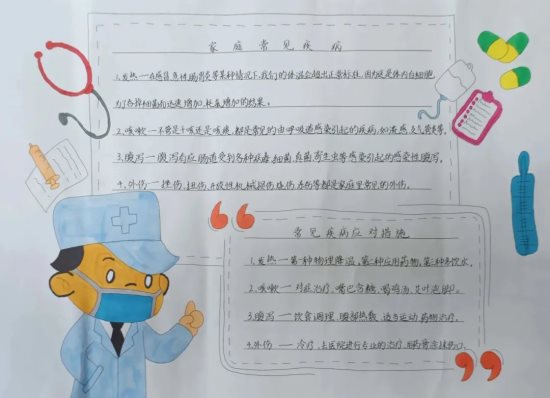 家庭常见疾病
1.发热—在感冒、急性肠胃炎等某种情况下,我们的体温会超出正常标准,因为这是体内白细胞
为了吞掉细菌而迅速增加,耗氧增加的结果。
2.咳嗽—不管是干咳还是咳痰,都是常见的由呼吸道感染引起的疾病,如流感、支气管炎等。
3.腹泻—腹泻有应肠道受到各种病毒、细菌、真菌寄生虫等感染引起的感染性腹泻。
4.外伤—挫伤、扭伤、机械损伤、烧伤、冻伤等都是家庭里常见的外伤。
常见疾病应对措施
1.发热—第一种物理降温,第二种应用药物,第三种多饮水。
2.咳嗽—对症治疗,嘴巴含糖、喝鸡汤、艾叶泡脚。
3.腹泻—饮食调理、腹部热敷、适当运动、药物治疗。
4.外伤—冷疗、去医院进行专业的治疗、用药膏涂抹伤口。